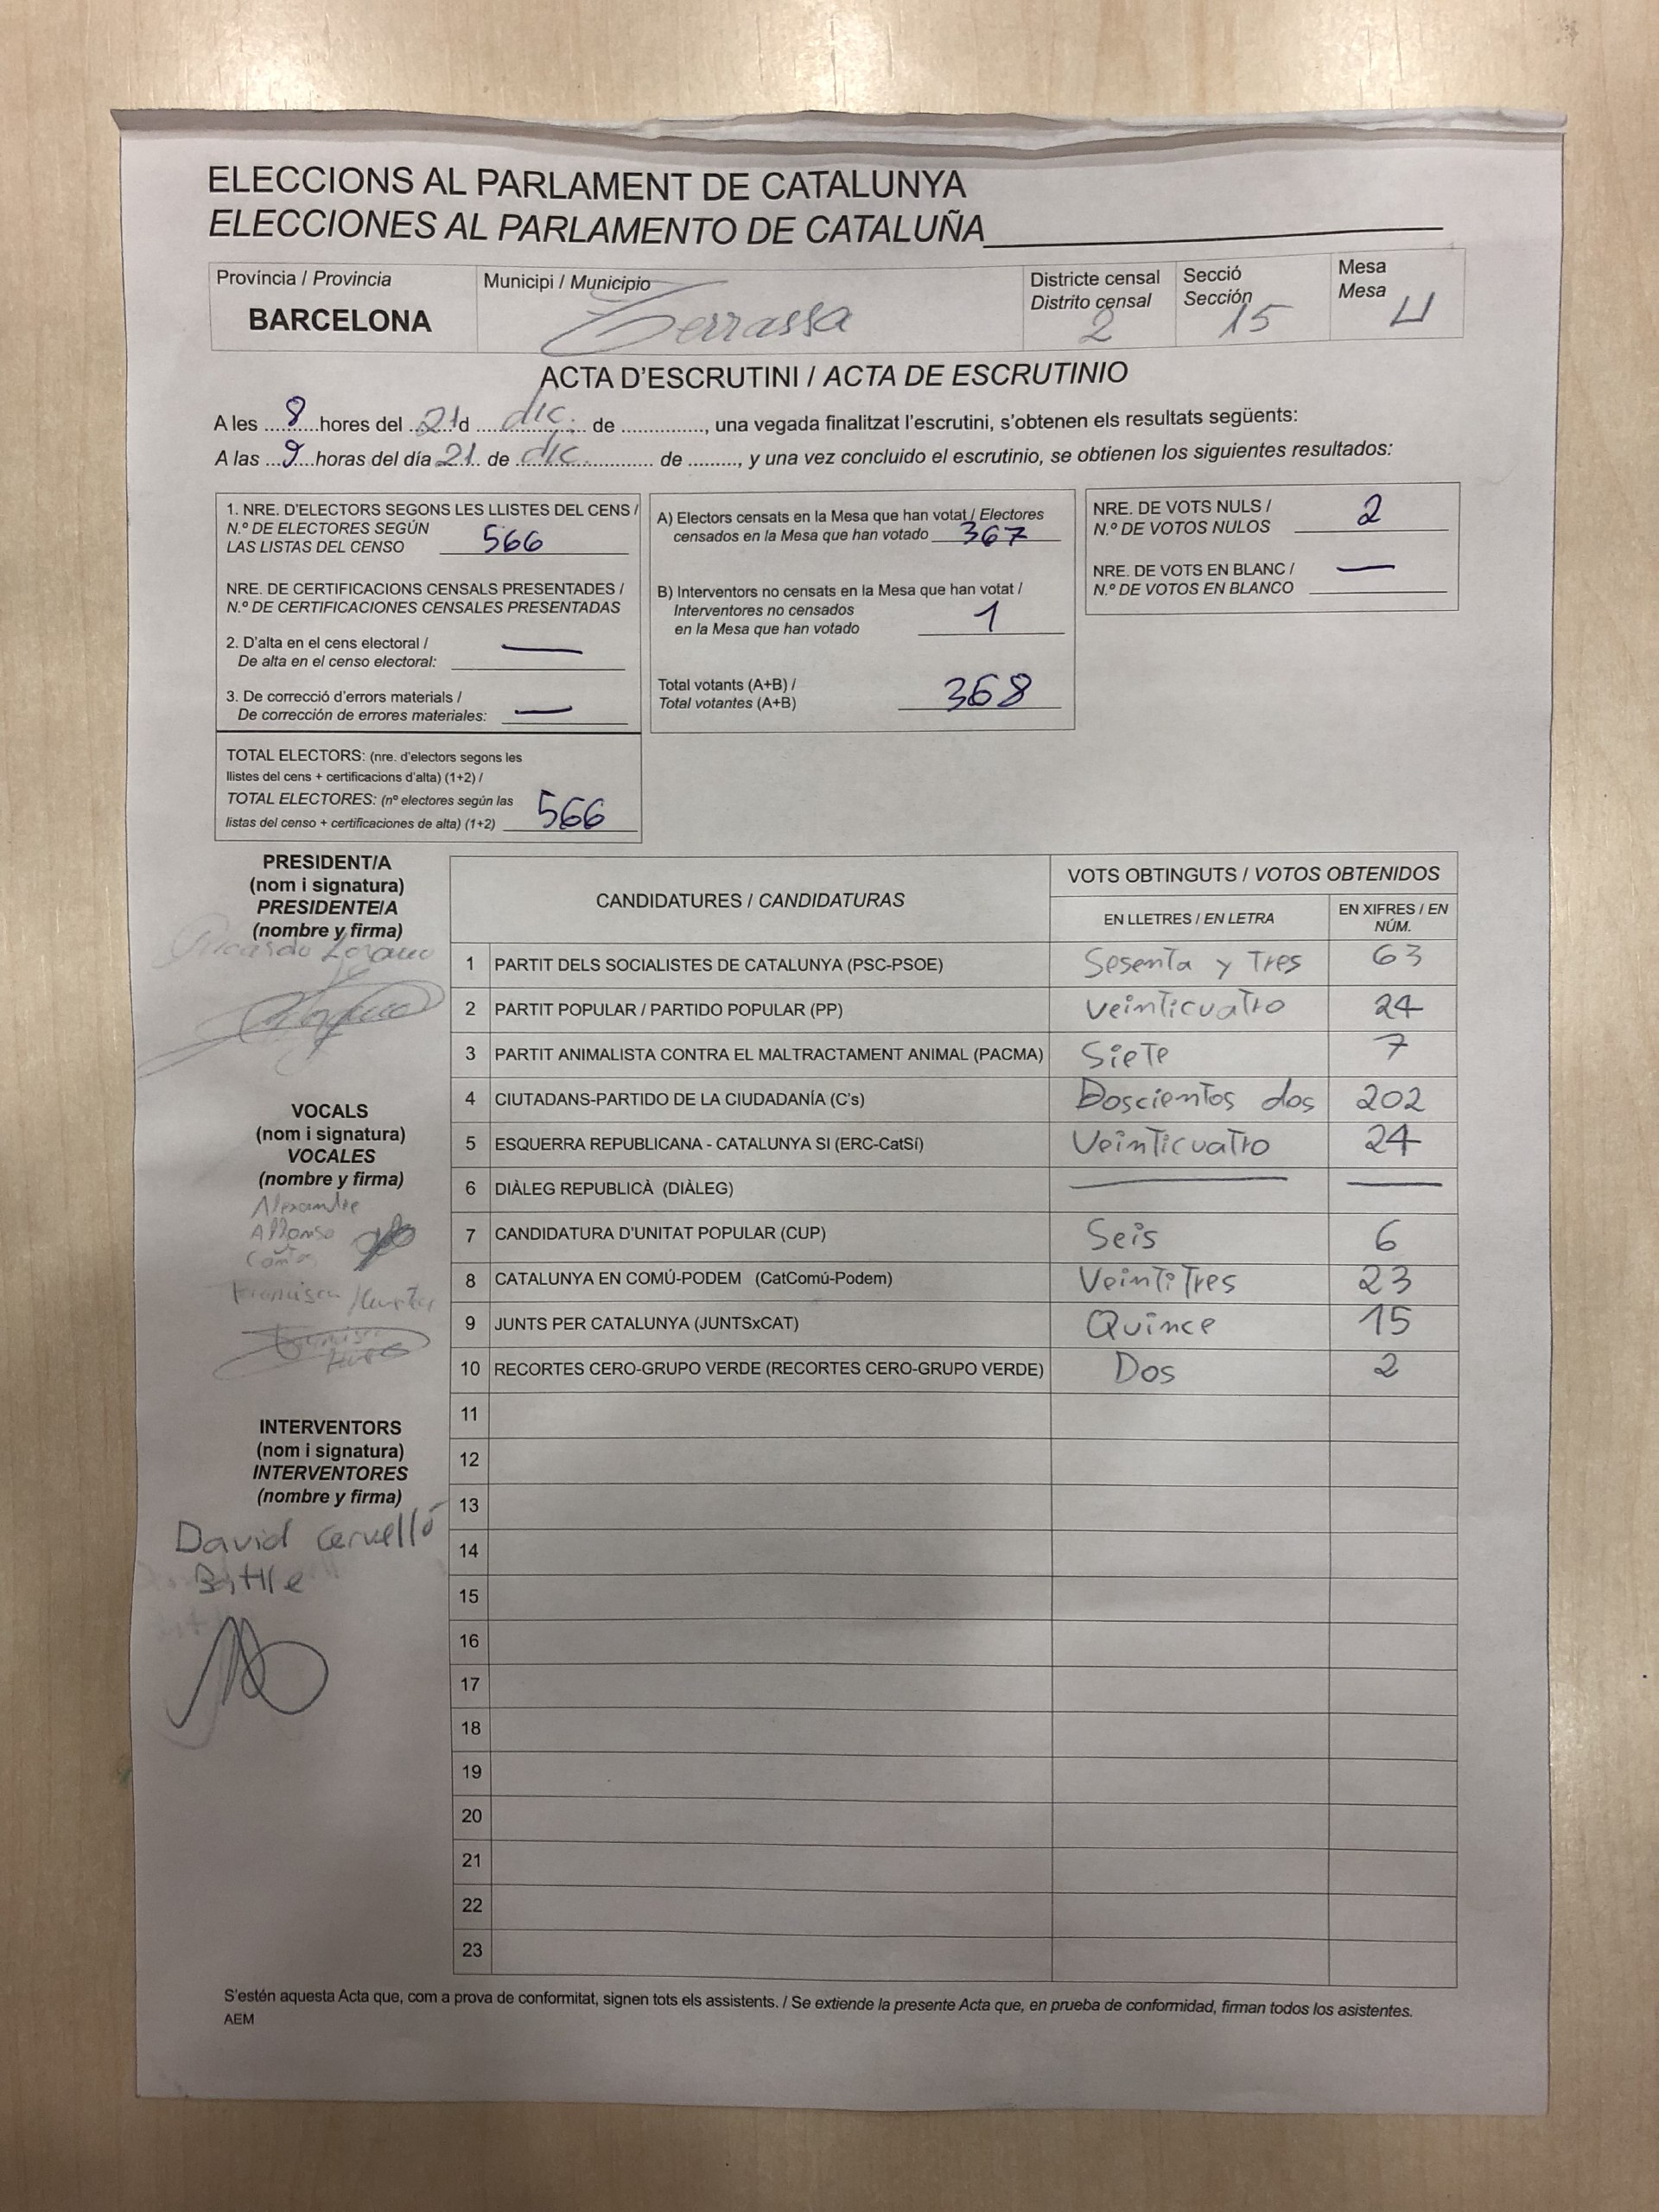 ELECCIONS AL PARLAMENT DE CATALUNYA
ELECCIONES AL PARLAMENTO DE CATALUÑA
Província / Provincia
BARCELONA
Municipi / Municipio
Terrassa
Districte censal
Distrito censal
2
Secció
Sección
15
Mesa
Mesa
U
ACTA D'ESCRUTINI / ACTA DE ESCRUTINIO
A les 8 hores del 21 d dic. de ............., una vegada finalitzat l'escrutini, s'obtenen els resultats següents:
A las 9 horas del día 21 de dic. de ........., y una vez concluido el escrutinio, se obtienen los siguientes resultados:
1. NRE. D'ELECTORS SEGONS LES LLISTES DEL CENS /
N.º DE ELECTORES SEGÚN
LAS LISTAS DEL CENSO 566
NRE. DE CERTIFICACIONS CENSALS PRESENTADES /
N.º DE CERTIFICACIONES CENSALES PRESENTADAS
2. D'alta en el cens electoral /
De alta en el censo electoral: —
3. De correcció d'errors materials /
De corrección de errores materiales: —
TOTAL ELECTORS: (nre. d'electors segons les
llistes del cens + certificacions d'alta) (1+2) /
TOTAL ELECTORES: (nº electores según las
listas del censo + certificaciones de alta) (1+2) 566
A) Electors censats en la Mesa que han votat / Electores
censados en la Mesa que han votado 367
B) Interventors no censats en la Mesa que han votat /
Interventores no censados
en la Mesa que han votado 1
Total votants (A+B) /
Total votantes (A+B) 368
NRE. DE VOTS NULS /
N.º DE VOTOS NULOS 2
NRE. DE VOTS EN BLANC /
N.º DE VOTOS EN BLANCO —
PRESIDENT/A
(nom i signatura)
PRESIDENTE/A
(nombre y firma)
Ricardo Lozano
VOCALS
(nom i signatura)
VOCALES
(nombre y firma)
Alexandre
Alfonso
INTERVENTORS
(nom i signatura)
INTERVENTORES
(nombre y firma)
David Cervelló
Batlle
CANDIDATURES / CANDIDATURAS
VOTS OBTINGUTS / VOTOS OBTENIDOS
EN LLETRES / EN LETRA
EN XIFRES / EN
NÚM.
1 PARTIT DELS SOCIALISTES DE CATALUNYA (PSC-PSOE) Sesenta y Tres 63
2 PARTIT POPULAR / PARTIDO POPULAR (PP) Veinticuatro 24
3 PARTIT ANIMALISTA CONTRA EL MALTRACTAMENT ANIMAL (PACMA) Siete 7
4 CIUTADANS-PARTIDO DE LA CIUDADANÍA (C's) Doscientos dos 202
5 ESQUERRA REPUBLICANA - CATALUNYA SI (ERC-CatSí) Veinticuatro 24
6 DIÀLEG REPUBLICÀ (DIÀLEG) — —
7 CANDIDATURA D'UNITAT POPULAR (CUP) Seis 6
8 CATALUNYA EN COMÚ-PODEM (CatComú-Podem) Veintitres 23
9 JUNTS PER CATALUNYA (JUNTSxCAT) Quince 15
10 RECORTES CERO-GRUPO VERDE (RECORTES CERO-GRUPO VERDE) Dos 2
11
12
13
14
15
16
17
18
19
20
21
22
23
S'estén aquesta Acta que, com a prova de conformitat, signen tots els assistents. / Se extiende la presente Acta que, en prueba de conformidad, firman todos los asistentes.
AEM